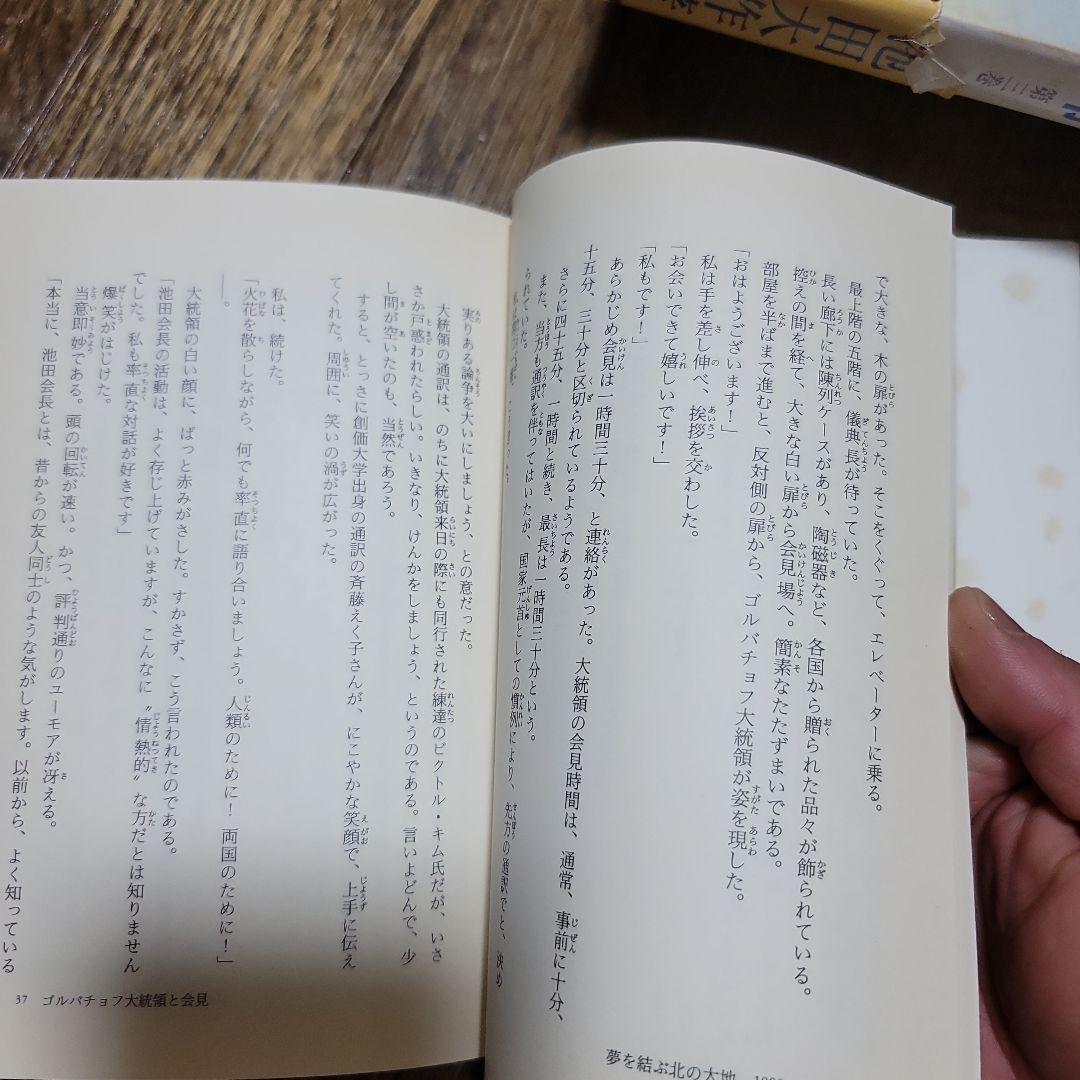 池田大作
第三巻
で大きな、木の扉があった。そこをくぐって、エレベーターに乗る。
最上階の五階に、儀典長が待っていた。
長い廊下には陳列ケースがあり、陶磁器など、各国から贈られた品々が飾られている。
控えの間を経て、大きな白い扉から会見場へ。簡素なたたずまいである。
部屋を半ばまで進むと、反対側の扉から、ゴルバチョフ大統領が姿を現した。
「おはようございます！」
私は手を差し伸べ、挨拶を交わした。
「お会いできて嬉しいです！」
「私もです！」
あらかじめ会見は一時間三十分、と連絡があった。大統領の会見時間は、通常、事前に十分、
十五分、三十分と区切られているようである。
さらに四十五分、一時間と続き、最長は一時間三十分という。
また、当方も通訳を伴ってはいたが、国家元首としての慣例により、先方の通訳でと、決め
られていた。
夢を結ぶ北の大地
実りある論争を大いにしましょう、との意だった。
大統領の通訳は、のちに大統領来日の際にも同行された練達のビクトル・キム氏だが、いさ
さか戸惑われたらしい。いきなり、けんかをしましょう、というのである。言いよどんで、少
し間が空いたのも、当然であろう。
すると、とっさに創価大学出身の通訳の斉藤えく子さんが、にこやかな笑顔で、上手に伝え
てくれた。周囲に、笑いの渦が広がった。
私は、続けた。
「火花を散らしながら、何でも率直に語り合いましょう。人類のために！　両国のために！」
――。
大統領の白い顔に、ぱっと赤みがさした。すかさず、こう言われたのである。
「池田会長の活動は、よく存じ上げていますが、こんなに〝情熱的〟な方だとは知りません
でした。私も率直な対話が好きです」
爆笑がはじけた。
当意即妙である。頭の回転が速い。かつ、評判通りのユーモアが冴える。
「本当に、池田会長とは、昔からの友人同士のような気がします。以前から、よく知っている
37　ゴルバチョフ大統領と会見